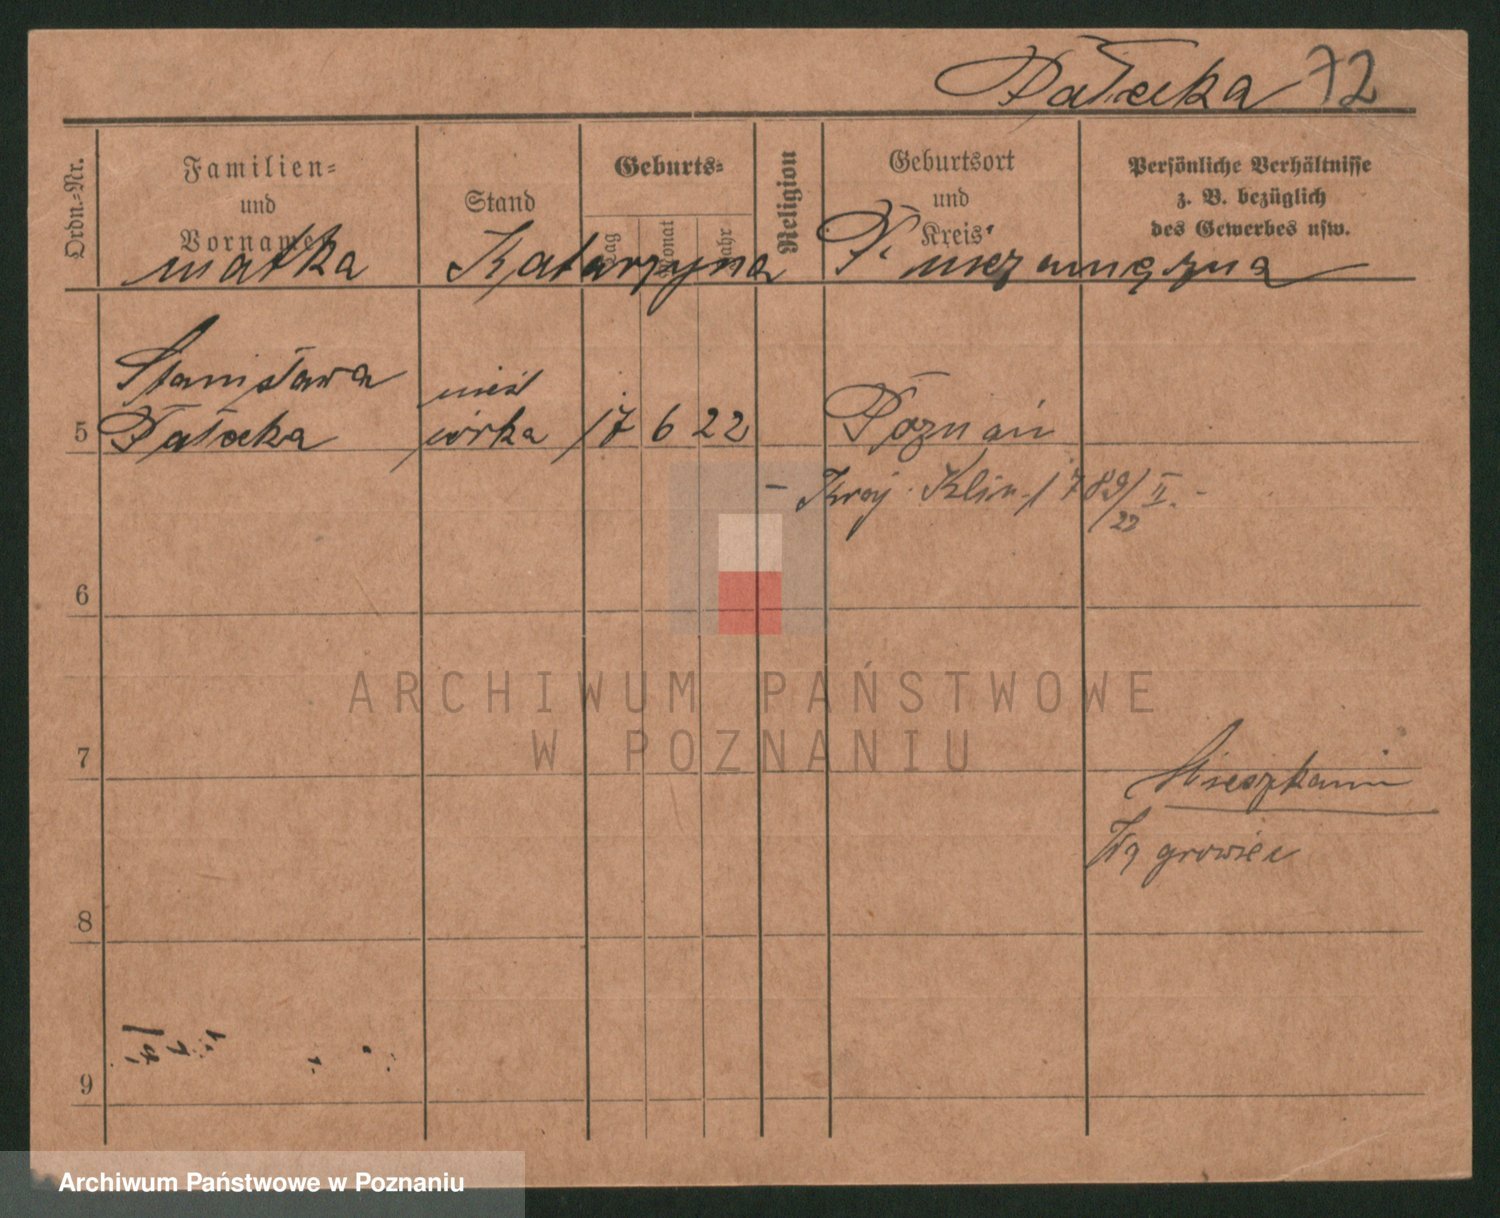 Pałecka 72
Ordn.-Nr.
Familien-
und
Vorname
Stand
Geburts-
Tag
Monat
Jahr
Religion
Geburtsort
und
Kreis
Persönliche Verhältnisse
z. B. bezüglich
des Gewerbes usw.
matka Katarzyna P. niezamężna
Stanisława
Pałecka
nieśl
córka
5
17 6 22
Poznań
- Kraj. Klin. 1789/II. -
22
6
7
Mieszkanie
Wągrowiec
8
9
ARCHIWUM PAŃSTWOWE
W POZNANIU
Archiwum Państwowe w Poznaniu